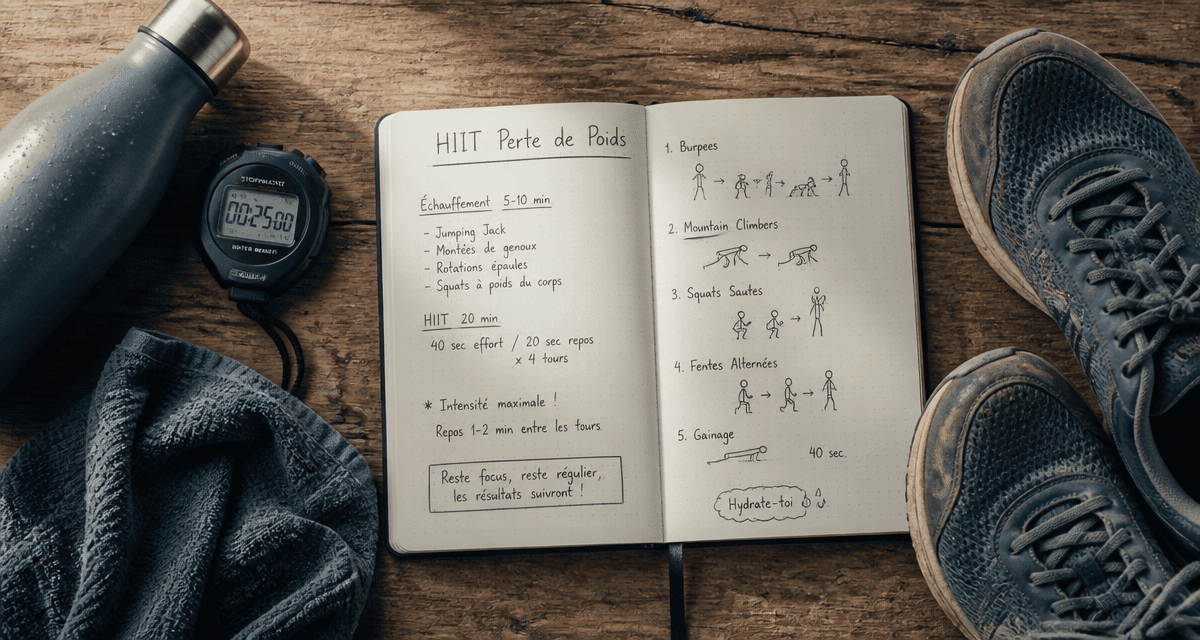 HIIT Perte de Poids
Échauffement 5-10 min.
- Jumping Jack
- Montées de genoux
- Rotations épaules
- Squats à poids du corps
HIIT 20 min.
40 sec effort / 20 sec repos
x 4 tours
* Intensité maximale !
Repos 1-2 min entre les tours.
Reste focus, reste régulier,
les résultats suivront !
1. Burpees
2. Mountain Climbers
3. Squats Sautes
4. Fentes Alternées
5. Gainage
40 sec.
Hydrate-toi
00:25:00